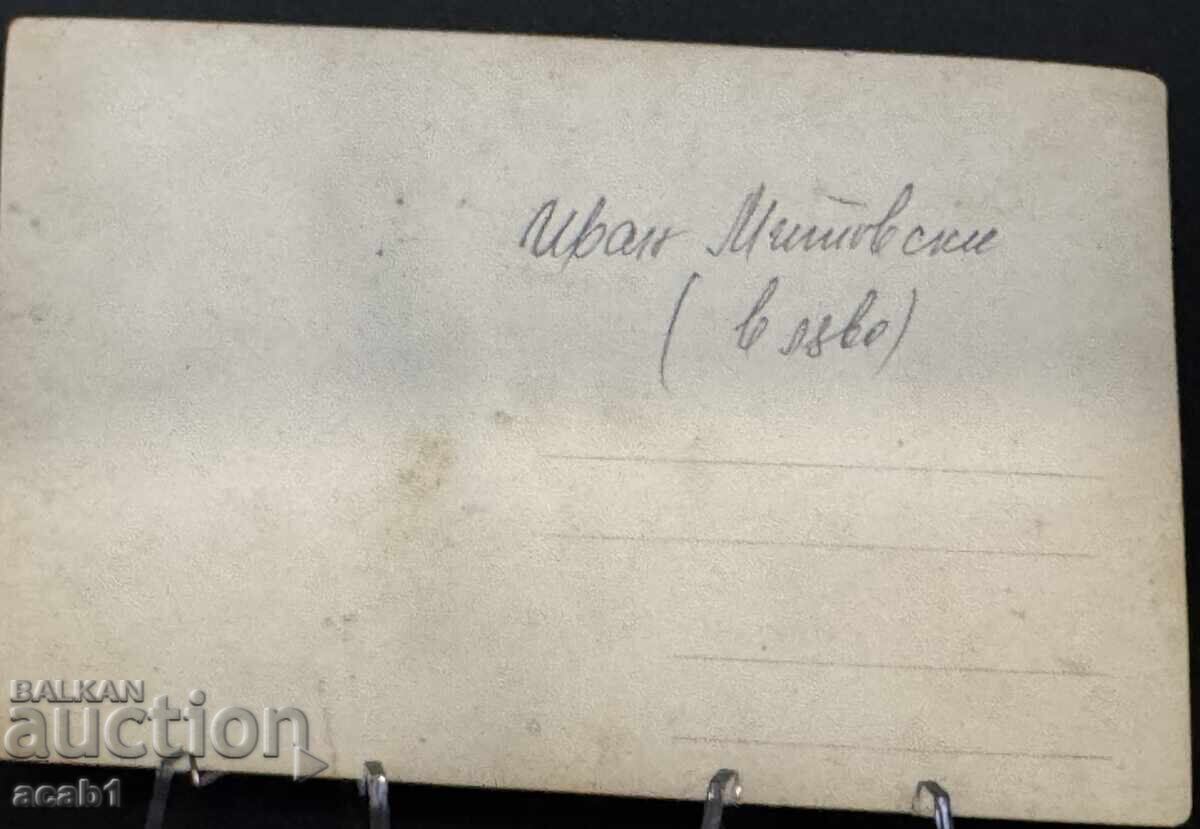 Иван Митовски
(в ляво)
BALKAN
auction
acab1